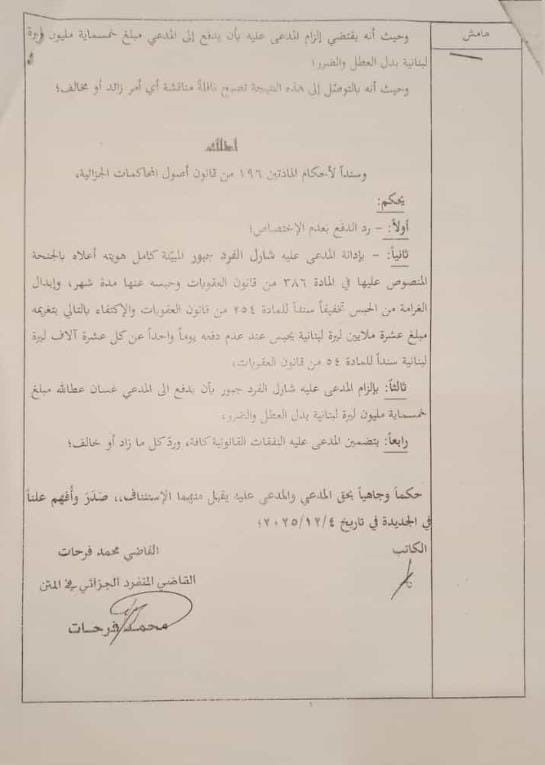 هامش
وحيث أنه يقتضي إلزام المدعى عليه بأن يدفع إلى المدعي مبلغ خمسماية مليون ليرة
لبنانية بدل العطل والضرر؛
وحيث أنه بالتوصّل إلى هذه النتيجة تصبح نافلةً مناقشة أي أمر زائد أو مخالف؛
لذلك
وسنداً لأحكام المادتين ١٩٦ من قانون أصول المحاكمات الجزائية،
يحكم:
أولاً: - رد الدفع بعدم الإختصاص؛
ثانياً: - بإدانة المدعى عليه شارل الفرد جبور المبيّنة كامل هويته أعلاه بالجنحة
المنصوص عليها في المادة ٣٨٦ من قانون العقوبات وحبسه عنها مدة شهر، وإبدال
الغرامة من الحبس تخفيفاً سنداً للمادة ٢٥٤ من قانون العقوبات والإكتفاء بالتالي بتغريمه
مبلغ عشرة ملايين ليرة لبنانية يحبس عند عدم دفعه يوماً واحداً عن كل عشرة آلاف ليرة
لبنانية سنداً للمادة ٥٤ من قانون العقوبات،
ثالثاً: بإلزام المدعى عليه شارل الفرد جبور بأن يدفع الى المدعي غسان عطالله مبلغ
خمسماية مليون ليرة لبنانية بدل العطل والضرر،
رابعاً: بتضمين المدعى عليه النفقات القانونية كافة، وردّ كل ما زاد أو خالف؛
حكماً وجاهياً بحق المدعي والمدعى عليه يقبل منهما الإستئناف،، صَدَرَ وأُفهم علناً
في الجديدة في تاريخ ٢٠٢٥/١٢/٤؛
الكاتب
القاضي محمد فرحات
القاضي المنفرد الجزائي في المتن
محمد فرحات